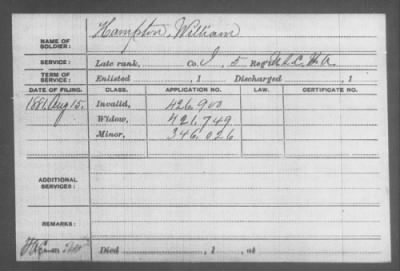 NAME OF SOLDIER: Hampton, William
SERVICE: Late rank, Co. I, 5 Reg't U.S.C.H.A.
TERM OF SERVICE: Enlisted , 1 Discharged , 1
DATE OF FILING. CLASS. APPLICATION NO. LAW. CERTIFICATE NO.
1881, Aug 15. Invalid, 426.900
Widow, 421.749
Minor, 346.026
ADDITIONAL SERVICES:
REMARKS:
Died , 1 , at